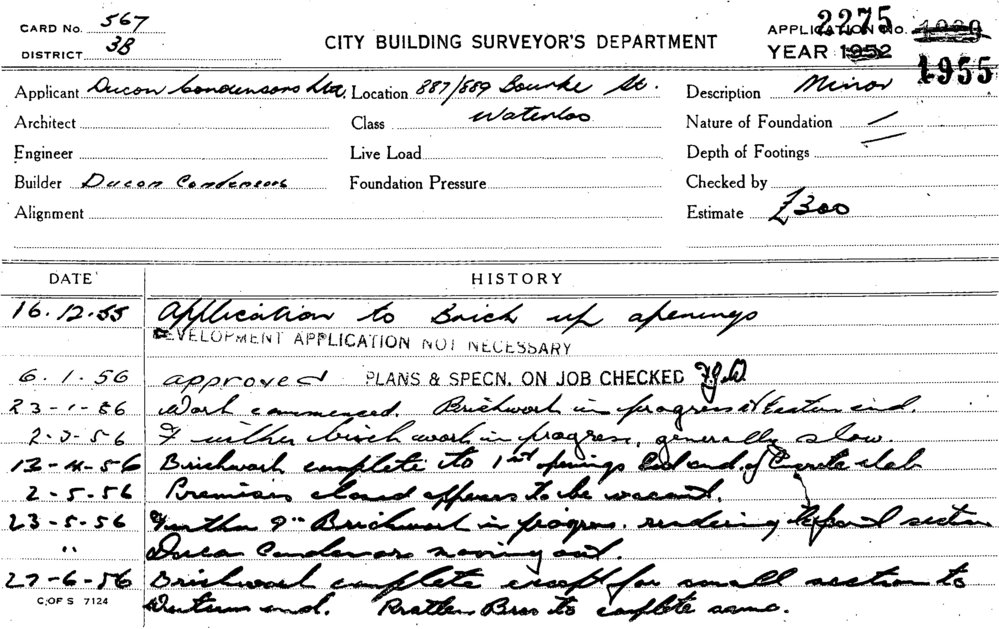 CARD NO. 567
DISTRICT 3B
CITY BUILDING SURVEYOR'S DEPARTMENT
APPLICATION NO. 2275
YEAR 1952 1955
Applicant Ducon Condensors Ltd. Location 887/889 Bourke St. Description Minor
Architect Class Waterloo Nature of Foundation /
Engineer Live Load Depth of Footings —
Builder Ducon Condensors Foundation Pressure Checked by
Alignment Estimate £300
DATE HISTORY
16.12.55 Application to Brick up openings
DEVELOPMENT APPLICATION NOT NECESSARY
6.1.56 approved PLANS & SPECN. ON JOB CHECKED F.J.W.
23-1-56 Work commenced. Brickwork in progress Eastern end.
2-3-56 Further brick work in progress, generally slow.
12-4-56 Brickwork complete to 1st openings end of slab
2-5-56 Premises closed appears to be vacant.
23-5-56 Further 9" Brickwork in progress. rendering section
" Ducon Condensors moving out.
27-6-56 Brickwork complete except for small section to
C; OF S 7124 Western end. Bros to complete same.